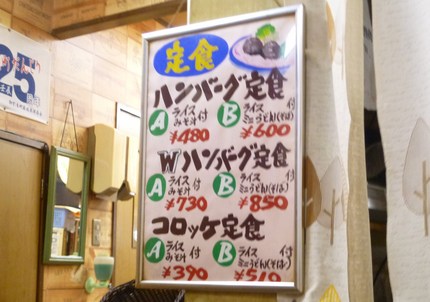 定食
ハンバーグ定食
A ライス みそ汁 付 ¥480
B ライス ミニうどん(そば) 付 ¥600
Wハンバーグ定食
A ライス みそ汁 付 ¥730
B ライス ミニうどん(そば) 付 ¥850
コロッケ定食
A ライス みそ汁 付 ¥390
B ライス ミニうどん(そば) 付 ¥510
25